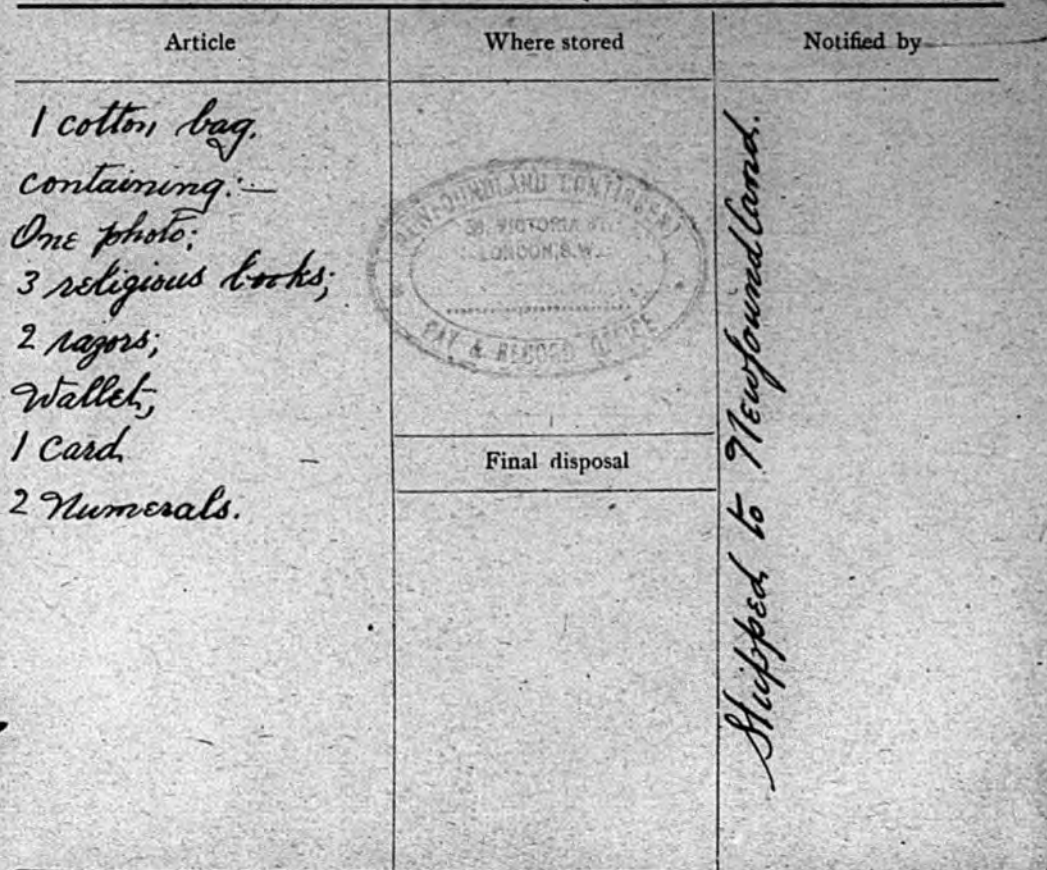 Article
Where stored
Notified by
1 cotton bag.
containing:—
One photo;
3 religious books;
2 razors;
Wallet;
1 Card
2 Numerals.
NEWFOUNDLAND CONTINGENT
VICTORIA ST.
LONDON, S.W.
PAY & RECORD OFFICE
Final disposal
Shipped to Newfoundland.